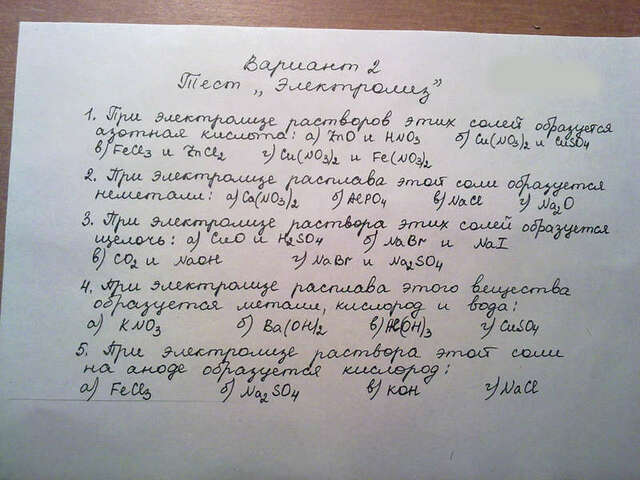 Вариант 2
Тест „Электролиз”
1. При электролизе растворов этих солей образуется
азотная кислота: а) ZnO и HNO₃ б) Cu(NO₃)₂ и CuSO₄
в) FeCl₃ и ZnCl₂ г) Cu(NO₃)₂ и Fe(NO₃)₂
2. При электролизе расплава этой соли образуется
неметалл: а) Ca(NO₃)₂ б) AlPO₄ в) NaCl г) Na₂O
3. При электролизе раствора этих солей образуется
щелочь: а) CuO и H₂SO₄ б) NaBr и NaI
в) CO₂ и NaOH г) NaBr и Na₂SO₄
4. При электролизе расплава этого вещества
образуется металл, кислород и вода:
а) KNO₃ б) Ba(OH)₂ в) Al(OH)₃ г) CuSO₄
5. При электролизе раствора этой соли
на аноде образуется кислород:
а) FeCl₃ б) Na₂SO₄ в) KOH г) NaCl